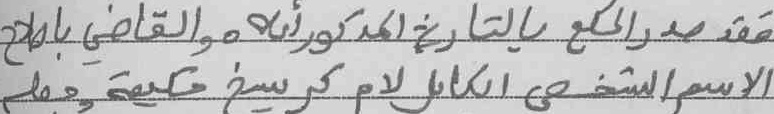 فقد صدر الحكم بالتاريخ المذكور أعلاه والقاضي بإصلاح
الاسم الشخصي الكامل لأم كريسخ فكيهة وعليه